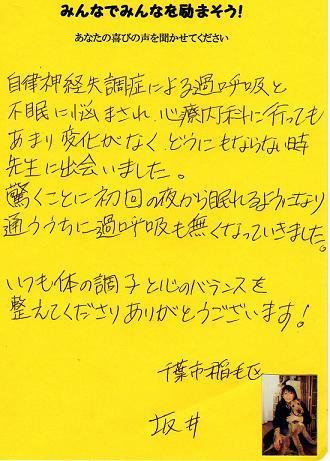 みんなでみんなを励まそう!
あなたの喜びの声を聞かせてください
自律神経失調症による過呼吸と
不眠に悩まされ、心療内科に行っても
あまり変化がなく、どうにもならない時
先生に出会いました。
驚くことに初回の夜から眠れるようになり
通ううちに過呼吸も無くなっていきました。
いつも体の調子と心のバランスを
整えてくださりありがとうございます!
千葉市稲毛区
坂井